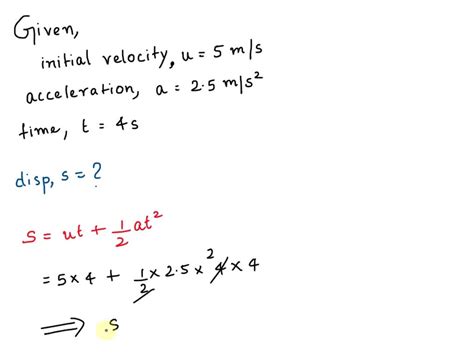 Given,
initial velocity, u = 5 m/s
acceleration, a = 2.5 m/s²
time, t = 4s
disp, s = ?
s = ut + 1/2 at²
= 5 × 4 + 1/2 × 2.5 × 4 × 4 2
⟹ .s